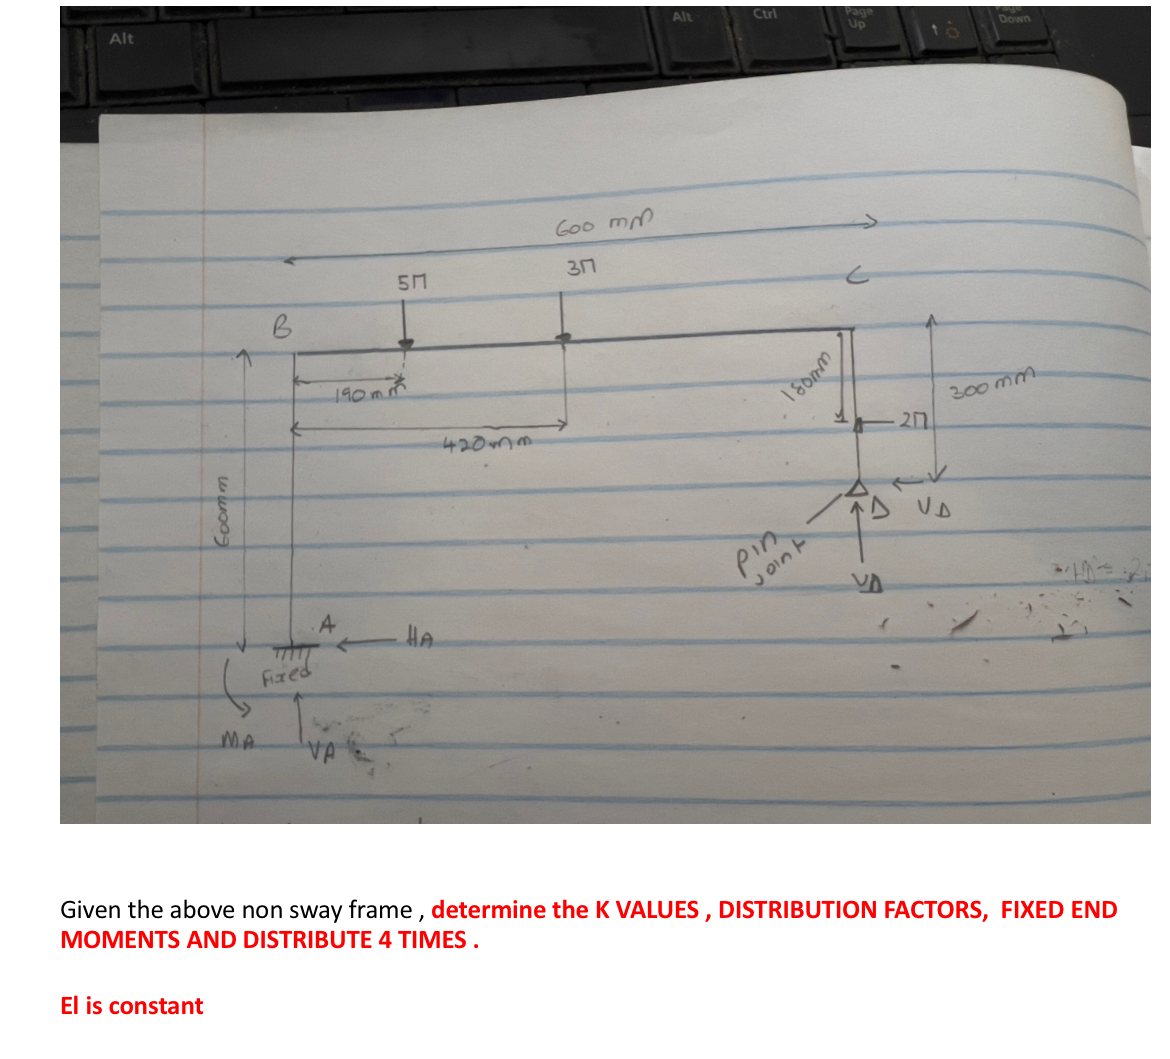 Alt
Alt
Ctrl
Page
Up
Page
Down
600 mm
5N
3N
C
B
190mm
180mm
300 mm
2N
420mm
600mm
D
VD
pin
joint
VD
A
HA
Fixed
MA
VA
Given the above non sway frame , determine the K VALUES , DISTRIBUTION FACTORS, FIXED END
MOMENTS AND DISTRIBUTE 4 TIMES .
EI is constant